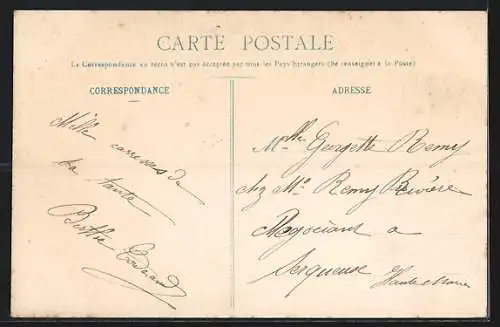 CARTE POSTALE
La Correspondance au recto n'est pas acceptée par tous les Pays étrangers (Se renseigner à la Poste)
CORRESPONDANCE
ADRESSE
Mille caresses de
ta tante
Berthe
Mlle Georgette Remy
chez Mr Remy Rivière
Négociant a
Serqueux
Haute Marne